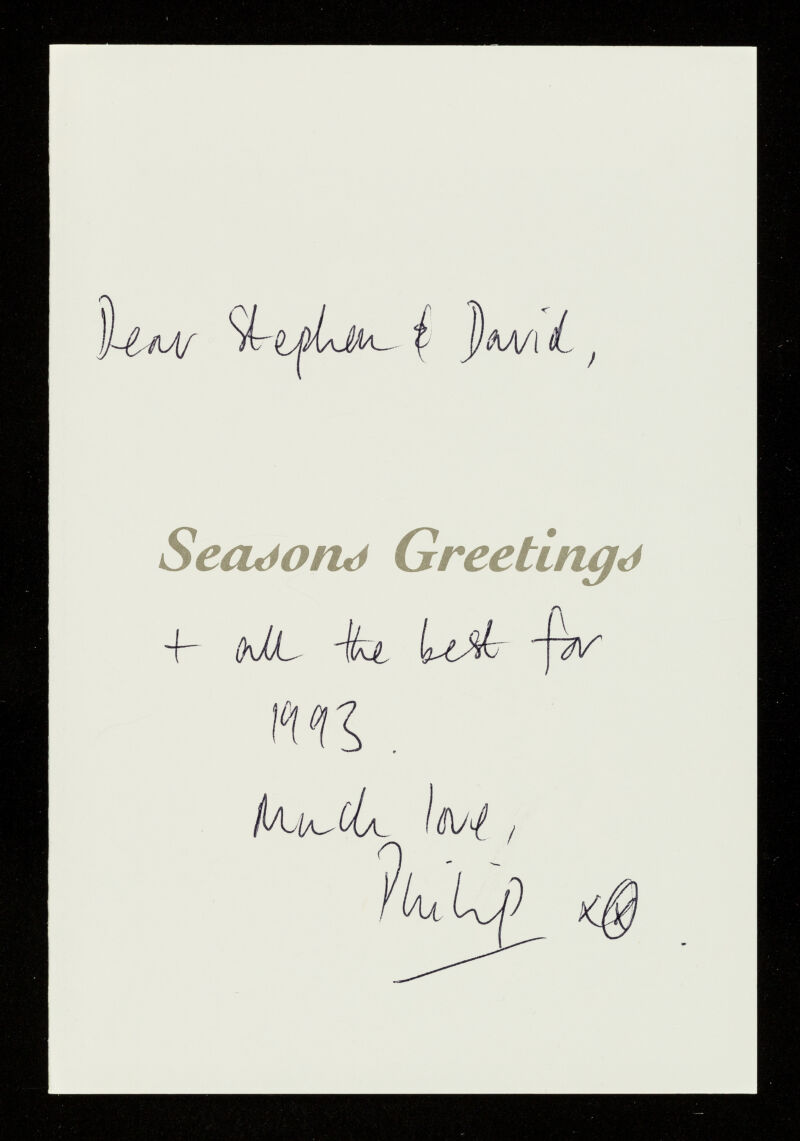 Dear Stephen & David,
Seasons Greetings
+ all the best for
1993.
Much love,
Philip xx